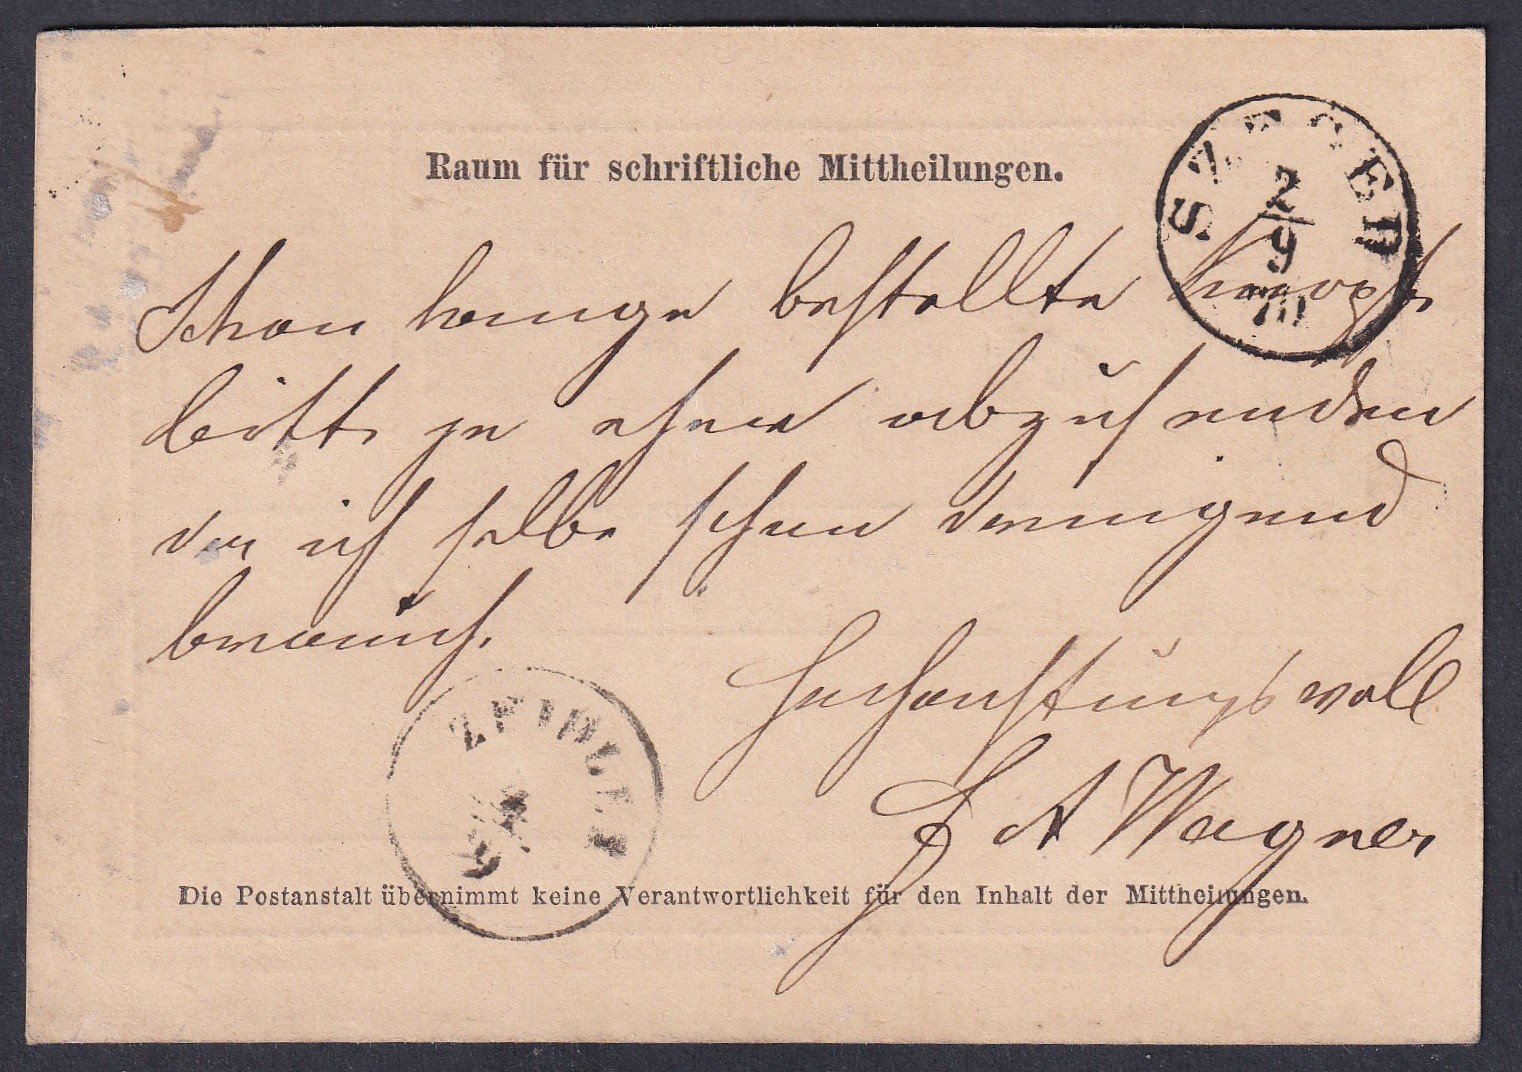 Raum für schriftliche Mittheilungen.
SZEGED
2/9
70
Schon lange bestellte
bitte je eher abzusenden
da ich selbe schon dringend
brauch.
Hochachtungsvoll
A Wagner
ZEIDLER
9
Die Postanstalt übernimmt keine Verantwortlichkeit für den Inhalt der Mittheilungen.